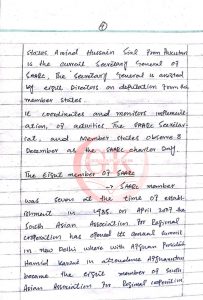 States. Amind Hussain Sial from Pakistan
is the current Secretary General of
SAARC. The Secretary General is assisted
by eight Directors on deputation from the
member states.
It coordinates and monitors implement-
ation, of activities. The SAARC Secretar-
iat, and Member states observe 8
December as the SAARC charter Day.
The eight member of SAARC
→ SAARC member
was seven at the time of estab-
lishment in 1985. on April 2007 the
South Asian Association for Regional
cooperation has opened its annual summit
in New Delhi where with Afghan President
Hamid Karzai in attendance Afghanistan
became the eight member of South
Asian Association for Regional cooperation